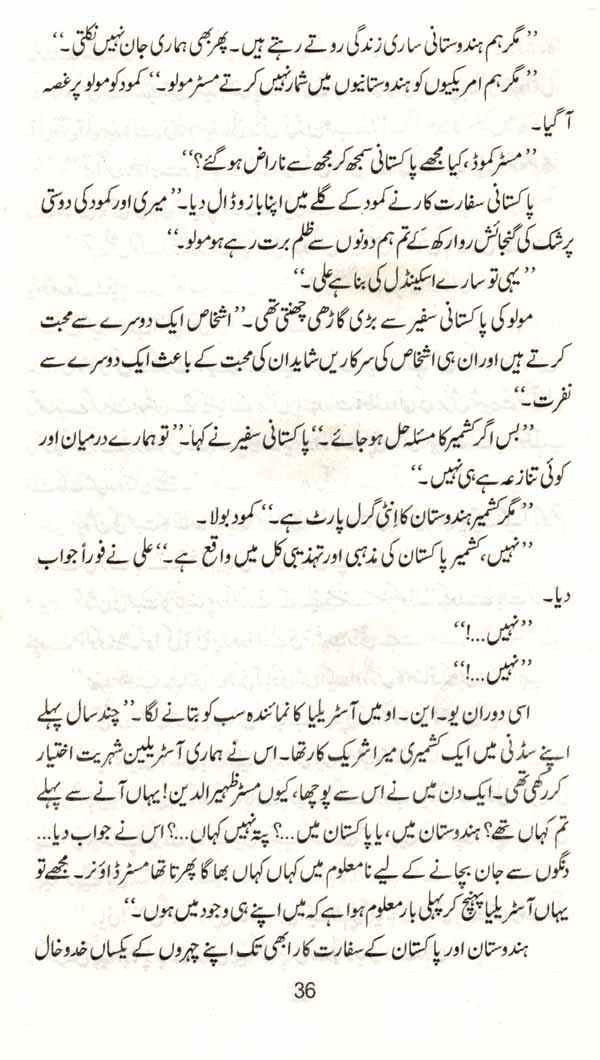 ”مگر ہم ہندوستانی ساری زندگی روتے رہتے ہیں۔ پھر بھی ہماری جان نہیں نکلتی۔“
”مگر ہم امریکیوں کو ہندوستانیوں میں شمار نہیں کرتے مسٹر مولو۔“ کمود کو مولو پر غصہ
آ گیا۔
”مسٹر کموڈ، کیا مجھے پاکستانی سمجھ کر مجھ سے ناراض ہو گئے؟“
پاکستانی سفارت کار نے کمود کے گلے میں اپنا بازو ڈال دیا۔ ”میری اور کمود کی دوستی
پر شک کی گنجائش روا رکھ کے تم ہم دونوں سے ظلم برت رہے ہو مولو۔“
”یہی تو سارے اسکینڈل کی بنا ہے علی۔“
مولو کی پاکستانی سفیر سے بڑی گاڑھی چھنتی تھی۔ ”اشخاص ایک دوسرے سے محبت
کرتے ہیں اور ان ہی اشخاص کی سرکاریں شاید ان کی محبت کے باعث ایک دوسرے سے
نفرت۔“
”بس اگر کشمیر کا مسئلہ حل ہو جائے۔“ پاکستانی سفیر نے کہا۔ ”تو ہمارے درمیان اور
کوئی تنازعہ ہے ہی نہیں۔“
”مگر کشمیر ہندوستان کا اِنٹی گرل پارٹ ہے۔“ کمود بولا۔
”نہیں، کشمیر پاکستان کی مذہبی اور تہذیبی کل میں واقع ہے۔“ علی نے فوراً جواب
دیا۔
”نہیں...!“
”نہیں...!“
اسی دوران یو۔ این۔ او میں آسٹریلیا کا نمائندہ سب کو بتانے لگا۔ ”چند سال پہلے
اپنے سڈنی میں ایک کشمیری میرا شریک کار تھا۔ اس نے ہماری آسٹریلین شہریت اختیار
کر رکھی تھی۔ ایک دن میں نے اس سے پوچھا، کیوں مسٹر ظہیر الدین! یہاں آنے سے پہلے
تم کہاں تھے؟ ہندوستان میں، یا پاکستان میں...؟ پتہ نہیں کہاں...؟ اس نے جواب دیا...
دنگوں سے جان بچانے کے لیے نامعلوم میں کہاں کہاں بھاگا پھرتا تھا مسٹر ڈاؤنر۔ مجھے تو
یہاں آسٹریلیا پہنچ کر پہلی بار معلوم ہوا ہے کہ میں اپنے ہی وجود میں ہوں۔“
ہندوستان اور پاکستان کے سفارت کار ابھی تک اپنے چہروں کے یکساں خد و خال
36